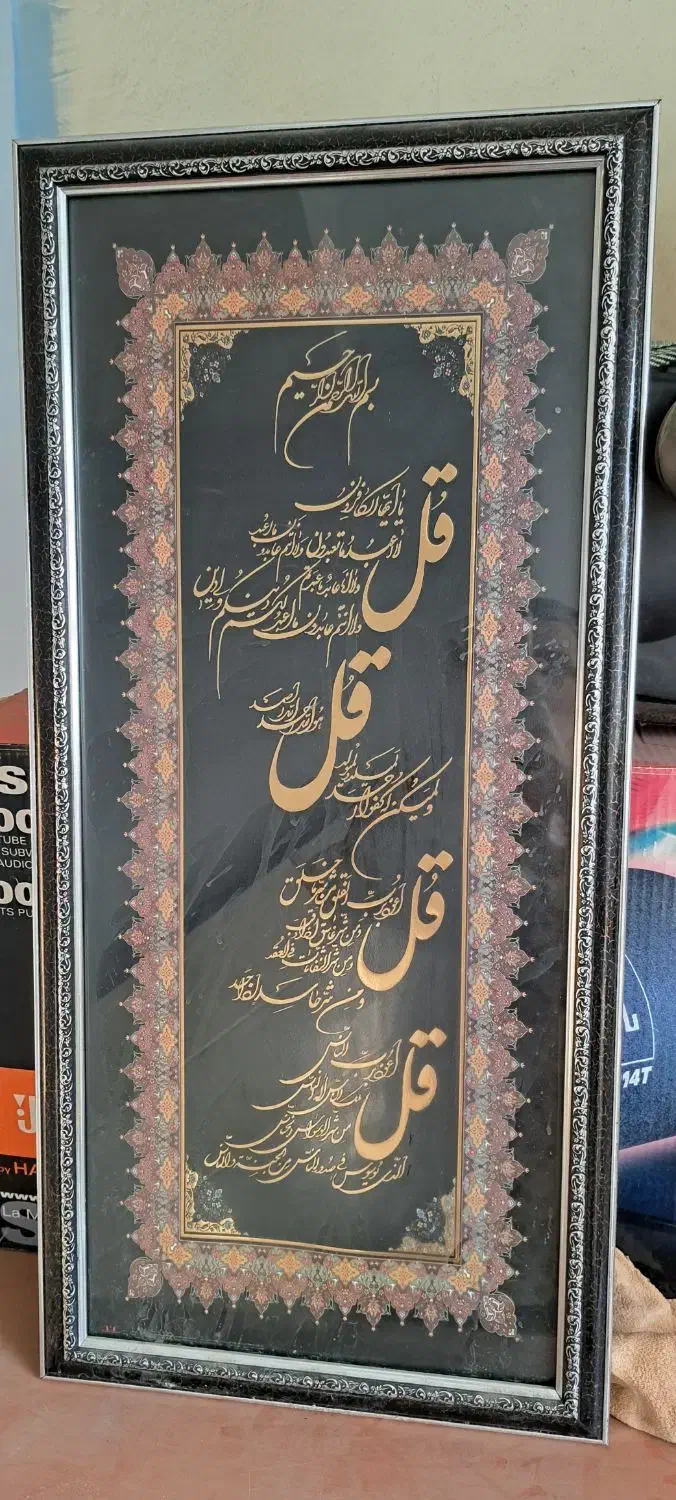 بسم الله الرحمن الرحيم
قُل يا ايها الكافرون
لا اعبد ما تعبدون ولا انتم عابدون ما اعبد
ولا انا عابد ما عبدتم
ولا انتم عابدون ما اعبد لكم دينكم ولي دين
قُل هو الله احد الله الصمد
لم يلد ولم يولد
ولم يكن له كفوا احد
قُل اعوذ برب الفلق من شر ما خلق
ومن شر غاسق اذا وقب
ومن شر النفاثات في العقد
ومن شر حاسد اذا حسد
قُل اعوذ برب الناس
ملك الناس اله الناس
من شر الوسواس الخناس
الذي يوسوس في صدور الناس من الجنة والناس
TUBE
SUBW
AUDIO
TS PU
BY HA
www
La M
14T